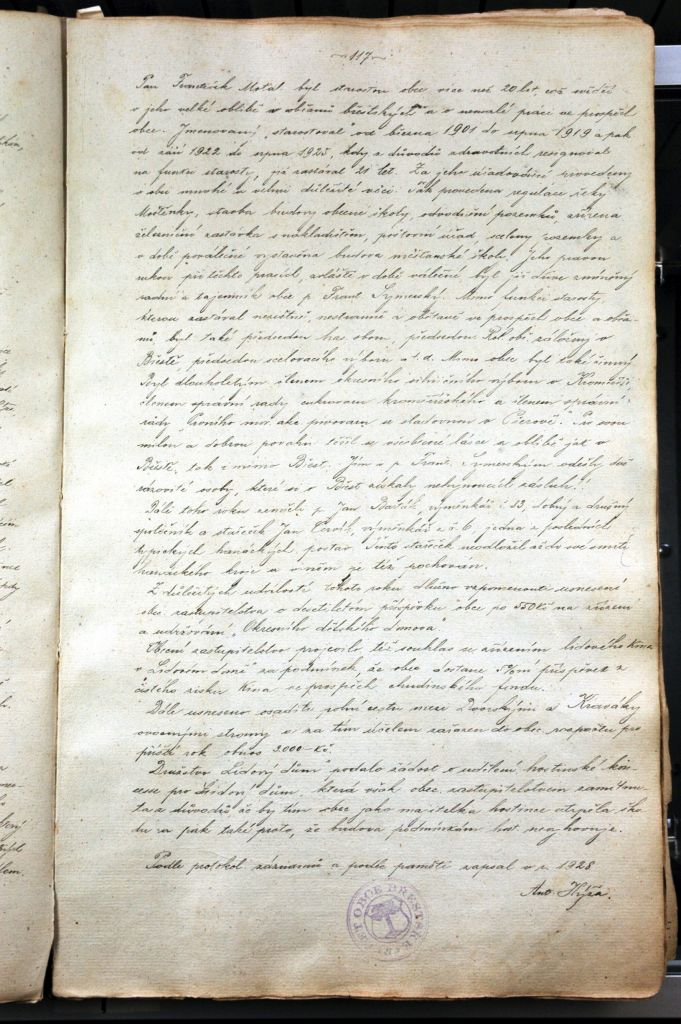 117
Pan František Motal byl starostou obce více než 20 let, což svědčí
o jeho velké oblibě u občanů břestských a o neunavné práci ve prospěch
obce. Jmenovaný starostoval od března 1901 do srpna 1919 a pak
od září 1922 do srpna 1925, kdy z důvodů zdravotních resignoval
na funkci starosty, již zastával 21 let. Za jeho úřadování provedeny
v obci mnohé a velmi důležité věci. Tak provedena regulace řeky
Moštěnky, stavba budovy obecné školy, odvodnění pozemků, zřízena
železniční zastávka s nakladištěm, poštovní úřad, sceleny pozemky a
v době poválečné vystavěna budova měšťanské školy. Jeho pravou
rukou při těchto pracích, zvláště v době válečné byl již dříve zmíněný
radní a tajemník obce p. Frant. Symerský. Mimo funkci starosty,
kterou zastával nezištně, nestranně a obětavě ve prospěch obce a obča-
nů, byl také předsedou has. sboru, předsedou Rol. bes. založený v
Břestě, předsedou scelovacího výboru a t. d. Mimo obec byl také činný
Byl dlouholetým členem okresního silničního výboru v Kroměříži,
členem správní rady cukrovaru kroměřížského a členem správní
rady "Prvního mor. akc. pivovaru se sladovnou v Přerově". Pro svou
milou a dobrou povahu těšil se všeobecné lásce a oblibě jak v
Břestě, tak i mimo Břest. Jím a p. Frant. Symerským odešly dvě
svérázovité osoby, které si o Břest získaly nehynoucích zásluh.
Dále toho roku zemřeli p. Jan Barták, výměnkář č. 13, dobrý a družný
společník a stařeček Jan Červík, výměnkář z č. 6, jedna z posledních
typických hanáckých postav. Tento stařeček neodložil až do své smrti
hanáckého kroje a v něm je též pochován.
Z důležitých událostí tohoto roku dlužno vzpomenouti usnesení
obec. zastupitelstva o desítiletém příspěvku obce po 550 Kč na zřízení
a udržování "Okresního dětského domova".
Obecní zastupitelstvo projevilo též souhlas se zřízením lidového kina
v "Lidovém domě" za podmínek, že obec dostane 5%ní příspěvek z
čistého zisku kina ve prospěch chudinského fondu.
Dále usneseno osaditi polní cestu mezi Dvorskými a Kraváky
ovocnými stromy a za tím účelem zařazen do obec. rozpočtu pro
příští rok obnos 3.000 Kč.
Družstvo "Lidový dům" podalo žádost o udělení hostinské kon-
cese pro Lidový dům, která však obec. zastupitelstvem zamítnu-
ta z důvodů, že by tím obec jako majitelka hostince utrpěla ško-
du a pak také proto, že budova podmínkám host. nevyhovuje.
Podle protokol. záznamů a podle paměti zapsal v r. 1928
Ant. Hýža.
OBCE BŘESTSKÉ